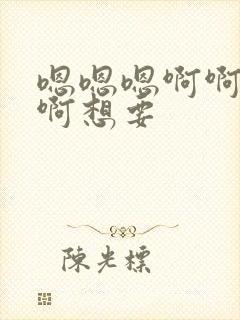 嗯嗯嗯啊啊
啊想要
陈光標